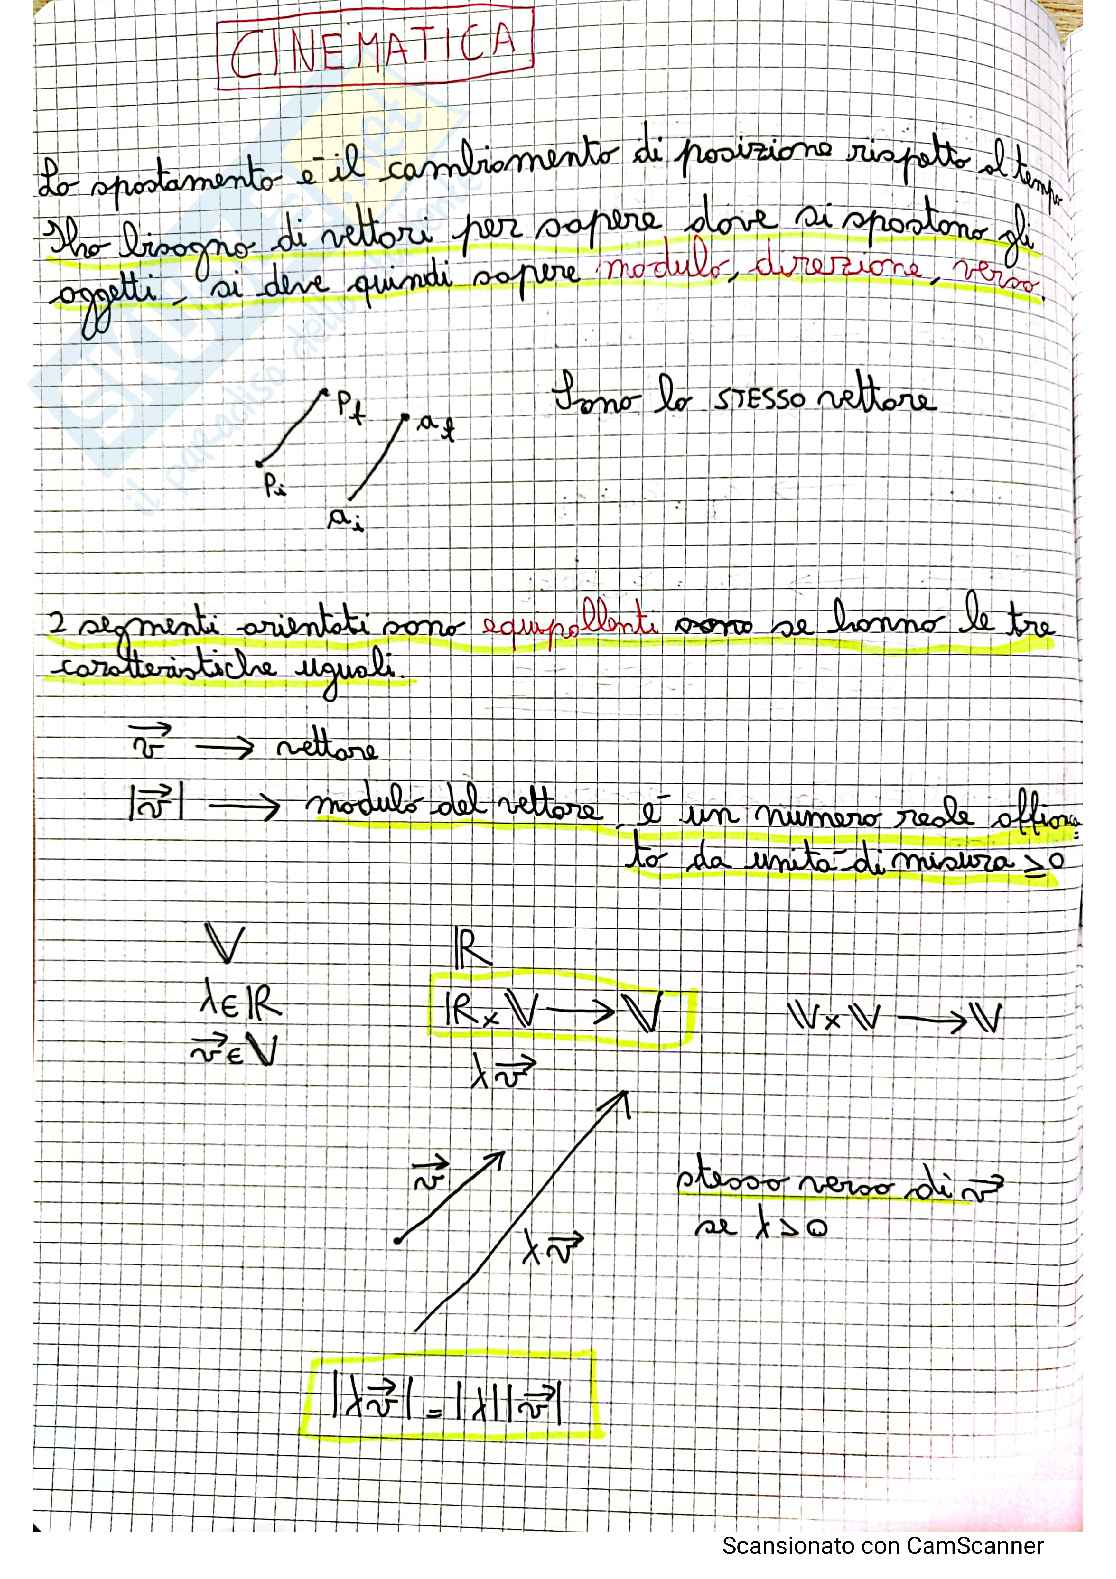 CINEMATICA
Lo spostamento è il cambiamento di posizione rispetto al tempo
Ho bisogno di vettori per sapere dove si spostano gli
oggetti, si deve quindi sapere modulo, direzione, verso.
Pf
af
Sono lo STESSO vettore
Pi
ai
2 segmenti orientati sono equipollenti sono se hanno le tre
caratteristiche uguali.
v⃗ → vettore
|v⃗| → modulo del vettore, è un numero reale affianca
to da unità di misura ≥0
𝕍 ℝ
λ∈ℝ ℝx𝕍 → 𝕍 𝕍x𝕍 → 𝕍
v⃗∈𝕍
λv⃗
v⃗
stesso verso di v⃗
se λ>0
λv⃗
|λv⃗| = |λ||v⃗|
il paradiso dello
Scansionato con CamScanner